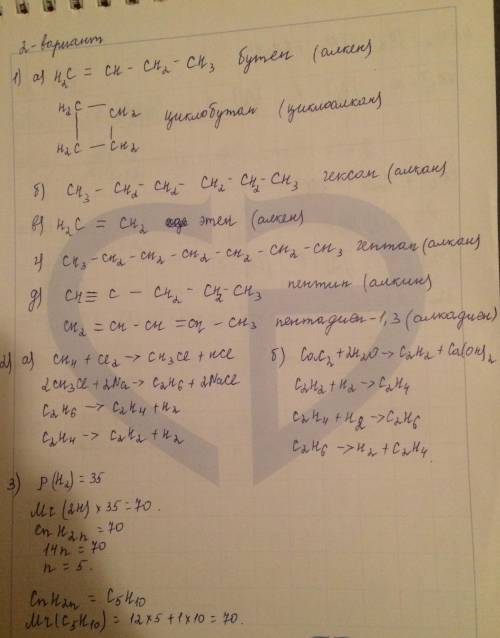 2-вариант
1) а) H₂C = CH - CH₂ - CH₃ бутен (алкен)
H₂C — CH₂
H₂C — CH₂ циклобутан (циклоалкан)
б) CH₃ - CH₂ - CH₂ - CH₂ - CH₂ - CH₃ гексан (алкан)
в) H₂C = CH₂ этен (алкен)
г) CH₃ - CH₂ - CH₂ - CH₂ - CH₂ - CH₂ - CH₃ гептан (алкан)
д) CH ≡ C - CH₂ - CH₂ - CH₃ пентин (алкин)
CH₂ = CH - CH = CH - CH₃ пентадиен-1,3 (алкадиен)
2) а) CH₄ + Cl₂ → CH₃Cl + HCl
2CH₃Cl + 2Na → C₂H₆ + 2NaCl
C₂H₆ → C₂H₄ + H₂
C₂H₄ → C₂H₂ + H₂
б) CaC₂ + 2H₂O → C₂H₂ + Ca(OH)₂
C₂H₂ + H₂ → C₂H₄
C₂H₄ + H₂ → C₂H₆
C₂H₆ → H₂ + C₂H₄
3) p(H₂) = 35
Mr(2H) × 35 = 70.
CnH2n = 70
14n = 70
n = 5.
CnH2n = C₅H₁₀
Mr(C₅H₁₀) = 12×5 + 1×10 = 70.